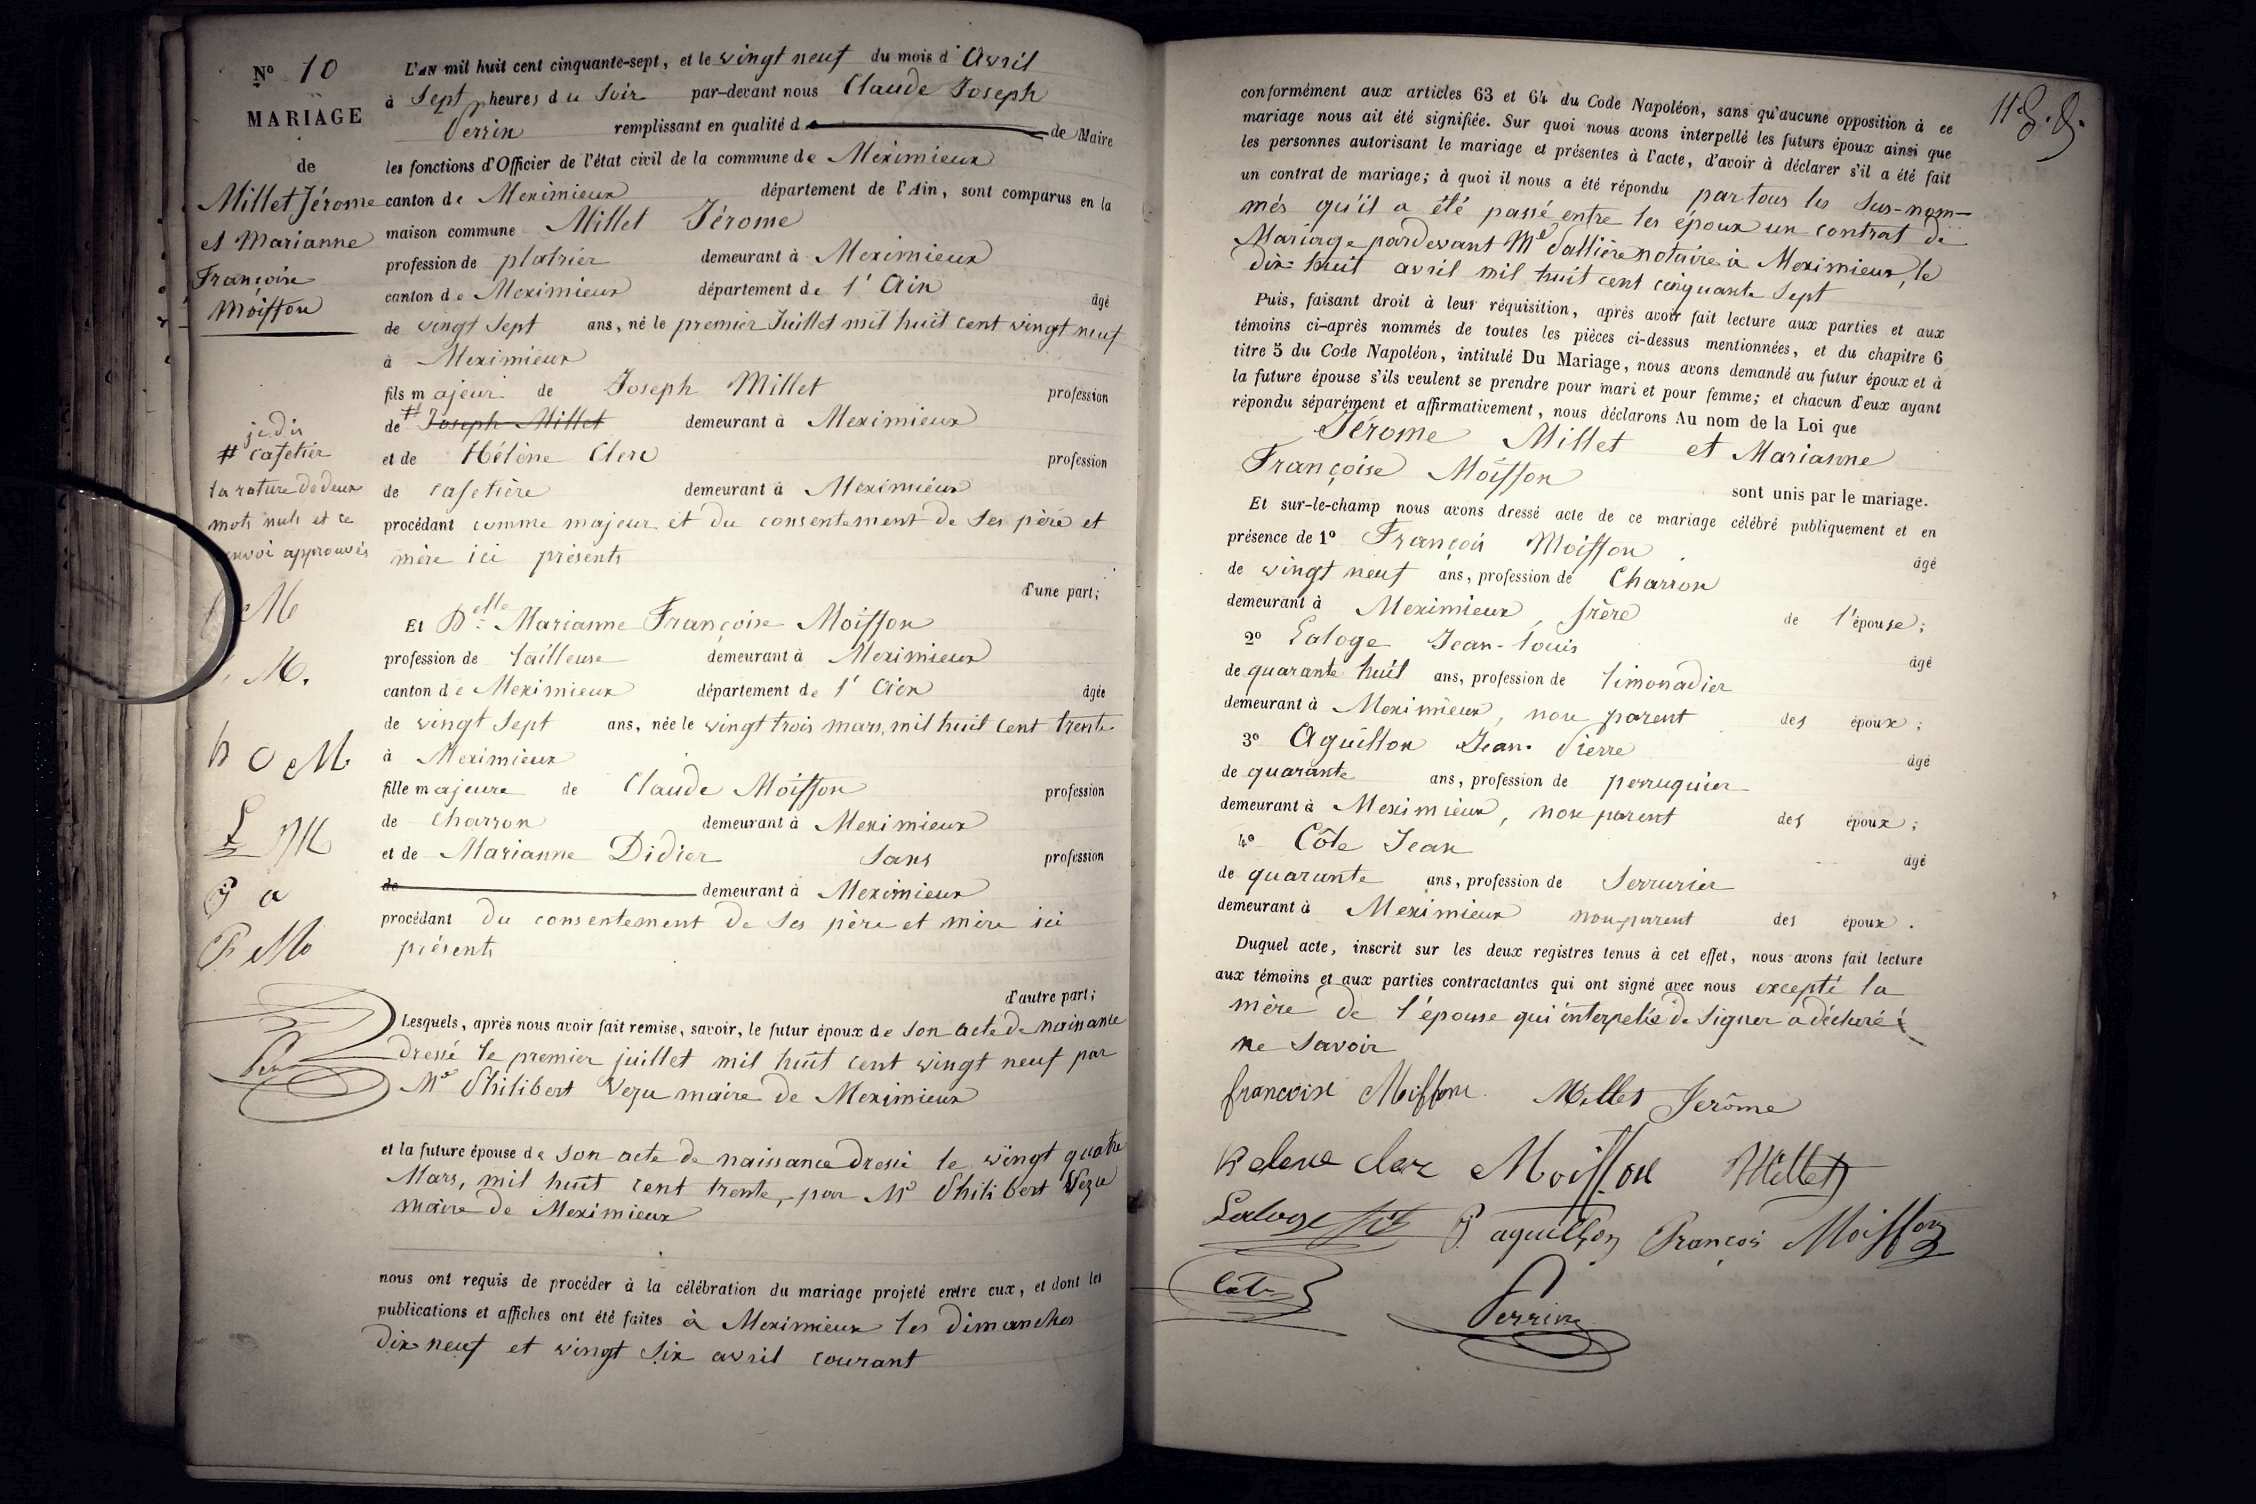 Nº 10
MARIAGE
de
Millet Jérome
et Marianne
Françoise
Moisson
je dis
# cafetier
la rature de deux
mots nuls et ce
renvoi approuvés
M
M.
h C M
L M
J a
F Mo
Per
L'AN mil huit cent cinquante-sept, et le vingt neuf du mois d'Avril
à Sept heures du Soir par-devant nous Claude Joseph
Perrin remplissant en qualité d de Maire
les fonctions d'Officier de l'état civil de la commune de Meximieux
canton de Meximieux département de l'Ain, sont comparus en la
maison commune Millet Jérome
profession de platrier demeurant à Meximieux
canton de Meximieux département de l'Ain âgé
de vingt Sept ans, né le premier Juillet mil huit cent vingt neuf
à Meximieux
fils majeur de Joseph Millet profession
de # Joseph Millet demeurant à Meximieux
et de Hélène Clerc profession
de cafetière demeurant à Meximieux
procédant comme majeur et du consentement de Ses père et
mère ici présents
d'une part;
Et Delle Marianne Françoise Moisson
profession de tailleuse demeurant à Meximieux
canton de Meximieux département de l'Ain âgée
de vingt Sept ans, née le vingt trois mars, mil huit cent trente
à Meximieux
fille majeure de Claude Moisson profession
de Charron demeurant à Meximieux
et de Marianne Didier Sans profession
de demeurant à Meximieux
procédant du consentement de Ses père et mère ici
présents
d'autre part;
Lesquels, après nous avoir fait remise, savoir, le futur époux de Son acte de naissance
dressé le premier juillet mil huit cent vingt neuf par
Mr Philibert Vezu maire de Meximieux
et la future épouse de Son acte de naissance dressé le vingt quatre
Mars, mil huit cent trente, par Mr Philibert Vezu
maire de Meximieux
nous ont requis de procéder à la célébration du mariage projeté entre eux, et dont les
publications et affiches ont été faites à Meximieux les dimanches
dix neuf et vingt Six avril courant
11
conformément aux articles 63 et 64 du Code Napoléon, sans qu'aucune opposition à ce
mariage nous ait été signifiée. Sur quoi nous avons interpellé les futurs époux ainsi que
les personnes autorisant le mariage et présentes à l'acte, d'avoir à déclarer s'il a été fait
un contrat de mariage; à quoi il nous a été répondu par tous les Sus-nom-
més qu'il a été passé entre les époux un contrat de
Mariage pardevant Me Vallière notaire à Meximieux, le
dix huit avril mil huit cent cinquante Sept
Puis, faisant droit à leur réquisition, après avoir fait lecture aux parties et aux
témoins ci-après nommés de toutes les pièces ci-dessus mentionnées, et du chapitre 6
titre 5 du Code Napoléon, intitulé Du Mariage, nous avons demandé au futur époux et à
la future épouse s'ils veulent se prendre pour mari et pour femme; et chacun d'eux ayant
répondu séparément et affirmativement, nous déclarons Au nom de la Loi que
Jérome Millet et Marianne
Françoise Moisson
sont unis par le mariage.
Et sur-le-champ nous avons dressé acte de ce mariage célébré publiquement et en
présence de 1º François Moisson âgé
de vingt neuf ans, profession de Charron
demeurant à Meximieux, frère de l'épouse;
2º Laloge Jean-Louis âgé
de quarante huit ans, profession de limonadier
demeurant à Meximieux, non parent des époux;
3º Aguillon Jean-Pierre âgé
de quarante ans, profession de perruquier
demeurant à Meximieux, non parent des époux;
4º Côte Jean âgé
de quarante ans, profession de Serrurier
demeurant à Meximieux non-parent des époux.
Duquel acte, inscrit sur les deux registres tenus à cet effet, nous avons fait lecture
aux témoins et aux parties contractantes qui ont signé avec nous excepté la
mère de l'épouse qui interpelée de Signer a déclaré
ne Savoir
francoise Moisson Millet Jerôme
helene clerc Moisson Millet
Laloge J aguillon François Moisson
Cote Perrin